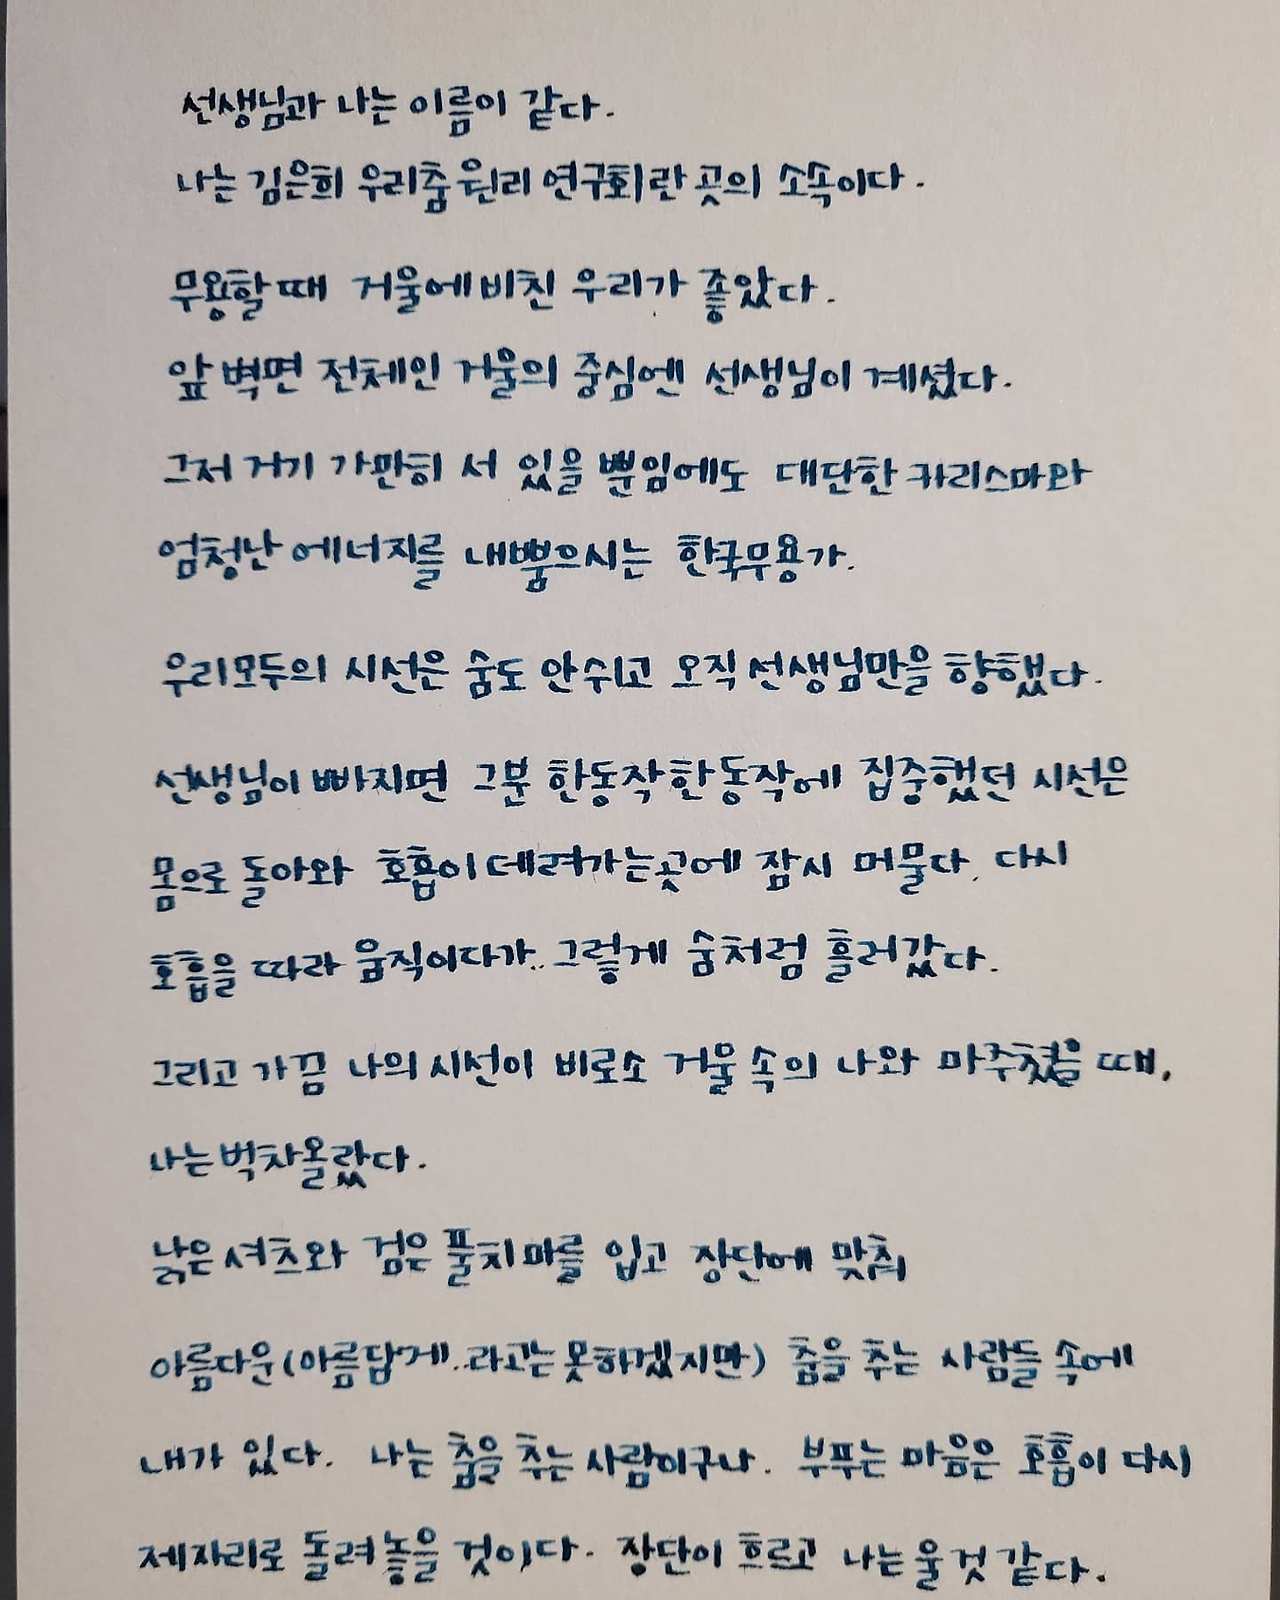 선생님과 나는 이름이 같다.
나는 김은희 우리춤 원리 연구회란 곳의 소속이다.
무용할 때 거울에 비친 우리가 좋았다.
앞 벽면 전체인 거울의 중심엔 선생님이 계셨다.
그저 거기 가만히 서 있을 뿐임에도 대단한 카리스마와
엄청난 에너지를 내뿜으시는 한국무용가.
우리모두의 시선은 숨도 안쉬고 오직 선생님만을 향했다.
선생님이 빠지면 그분 한동작 한동작에 집중했던 시선은
몸으로 돌아와 호흡이 데려가는곳에 잠시 머물다, 다시
호흡을 따라 움직이다가.. 그렇게 숨처럼 흘러갔다.
그리고 가끔 나의 시선이 비로소 거울 속의 나와 마주쳤을 때,
나는 벅차올랐다.
낡은 셔츠와 검은 풀치마를 입고 장단에 맞춰
아름다운(아름답게..라고는 못하겠지만) 춤을 추는 사람들 속에
내가 있다. 나는 춤을 추는 사람이구나. 부푸는 마음은 호흡이 다시
제자리로 돌려놓을 것이다. 장단이 흐르고 나는 울 것 같다.